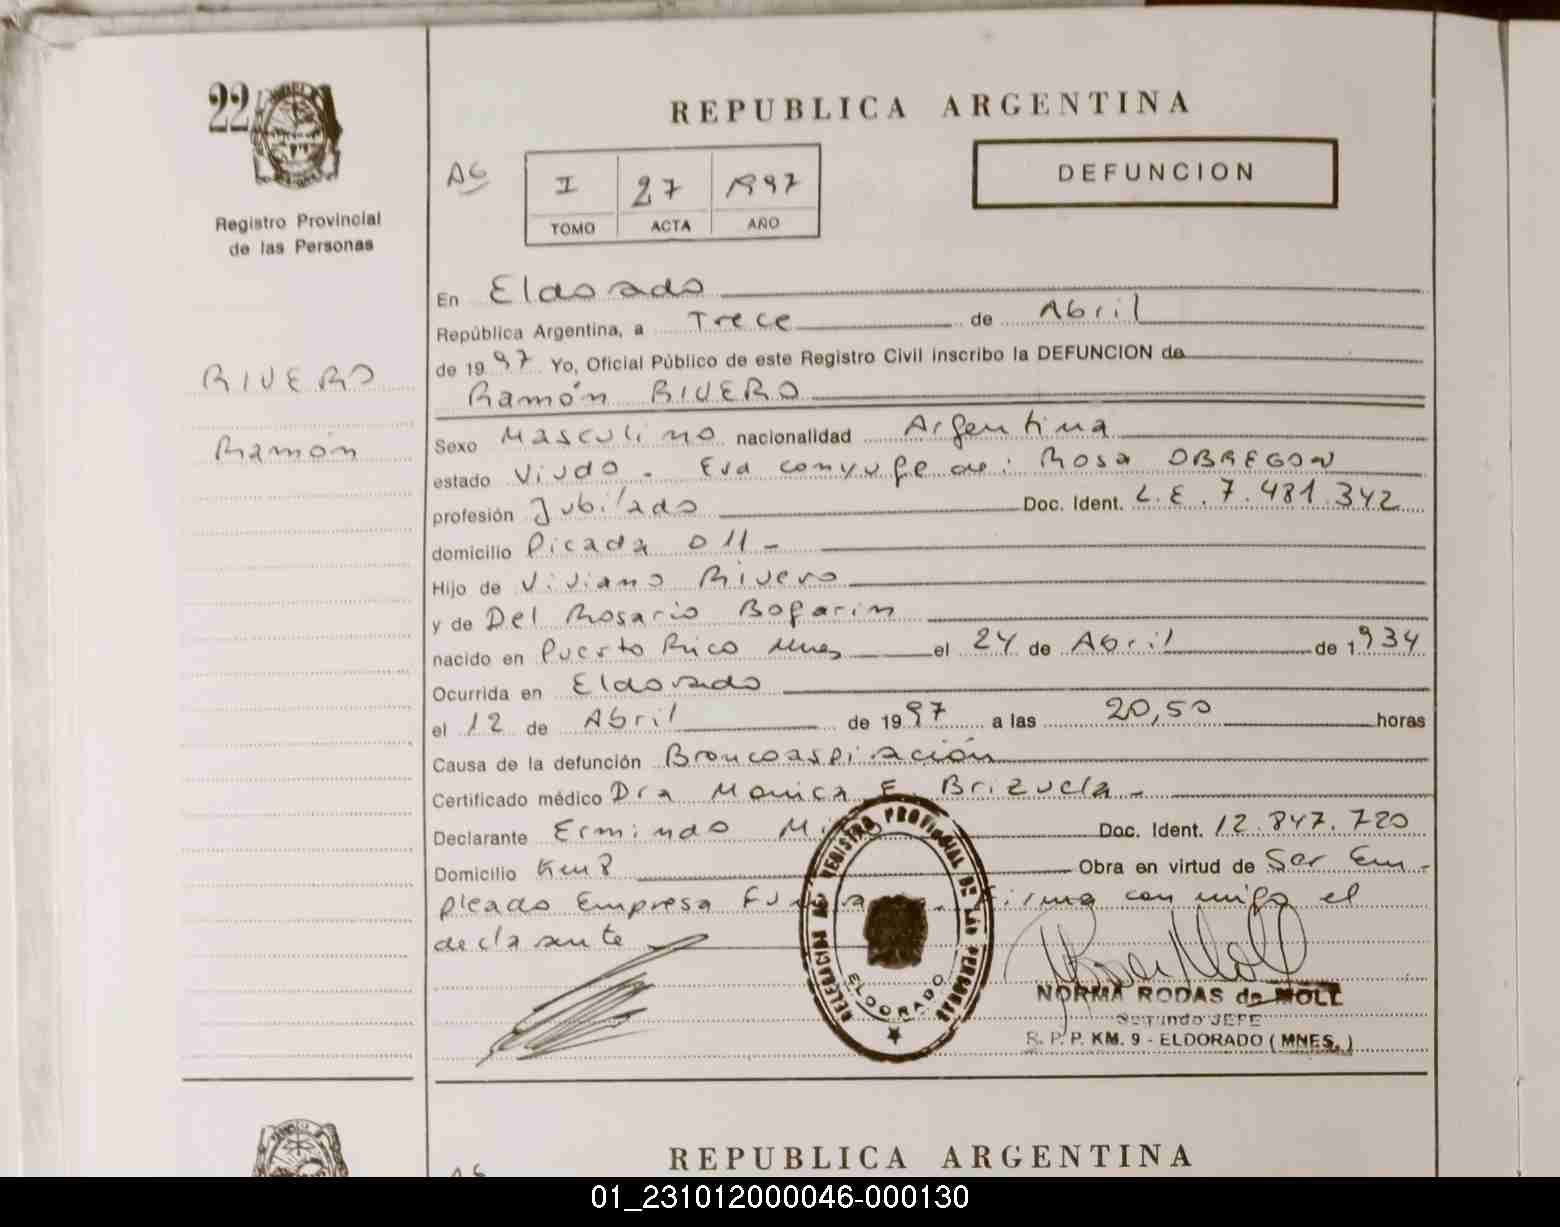 22
Registro Provincial
de las Personas
RIVERO
Ramón
REPUBLICA ARGENTINA
AG
I 27 1997
TOMO ACTA AÑO
DEFUNCION
En Eldorado
República Argentina, a Trece de Abril
de 1997 Yo, Oficial Público de este Registro Civil inscribo la DEFUNCION de
Ramón RIVERO
Sexo Masculino nacionalidad Argentina
estado Viudo - Era conyuge de: Rosa OBREGON
profesión Jubilado Doc. Ident. L.E. 7.481.342
domicilio Picada 011 -
Hijo de Viviano Rivero
y de Del Rosario Bogarin
nacido en Puerto Rico Mnes el 24 de Abril de 1934
Ocurrida en Eldorado
el 12 de Abril de 1997 a las 20,50 horas
Causa de la defunción Broncoaspiración
Certificado médico Dra Monica E. Brizuela -
Declarante Ermindo Doc. Ident. 12.847.720
Domicilio Km 8 Obra en virtud de Ser Em-
pleado Empresa Firma con migo el
declarante
DELEGACION AG. REGISTRO PROVINCIAL DE LAS PERSONAS
ELDORADO
NORMA RODAS de MOLL
Segundo JEFE
R. P. P. KM. 9 - ELDORADO (MNES.)
REPUBLICA ARGENTINA
AG
01_231012000046-000130